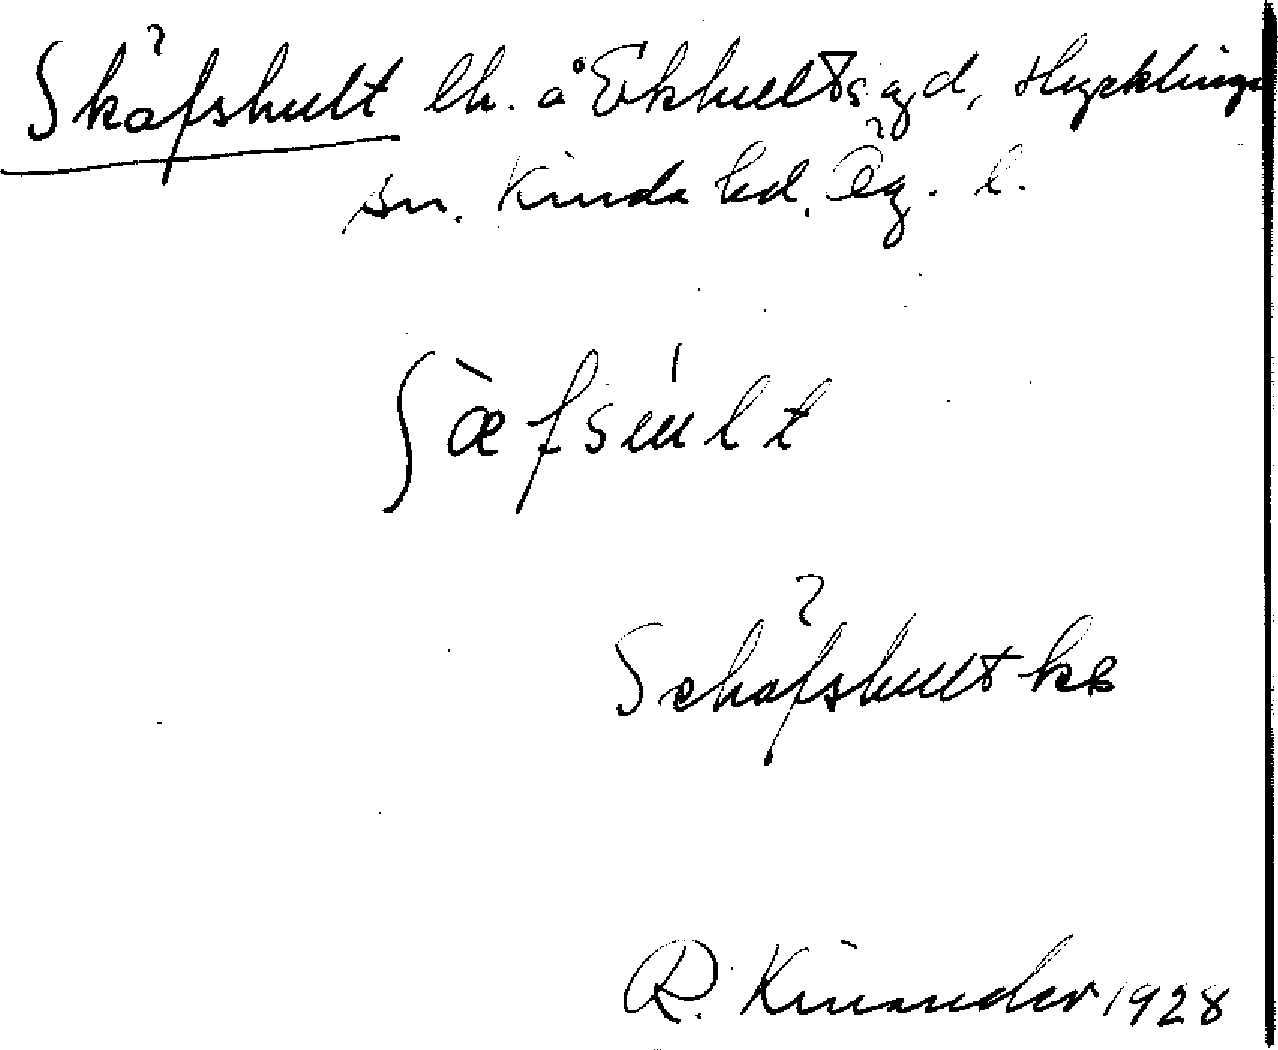 Skäfshult lh. å Ekhults gd, Hycklinge
sn. Kinda hd, Ög. l.
ʃæ̀fsúlt
Schäfshult kb
R. Kinander 1928